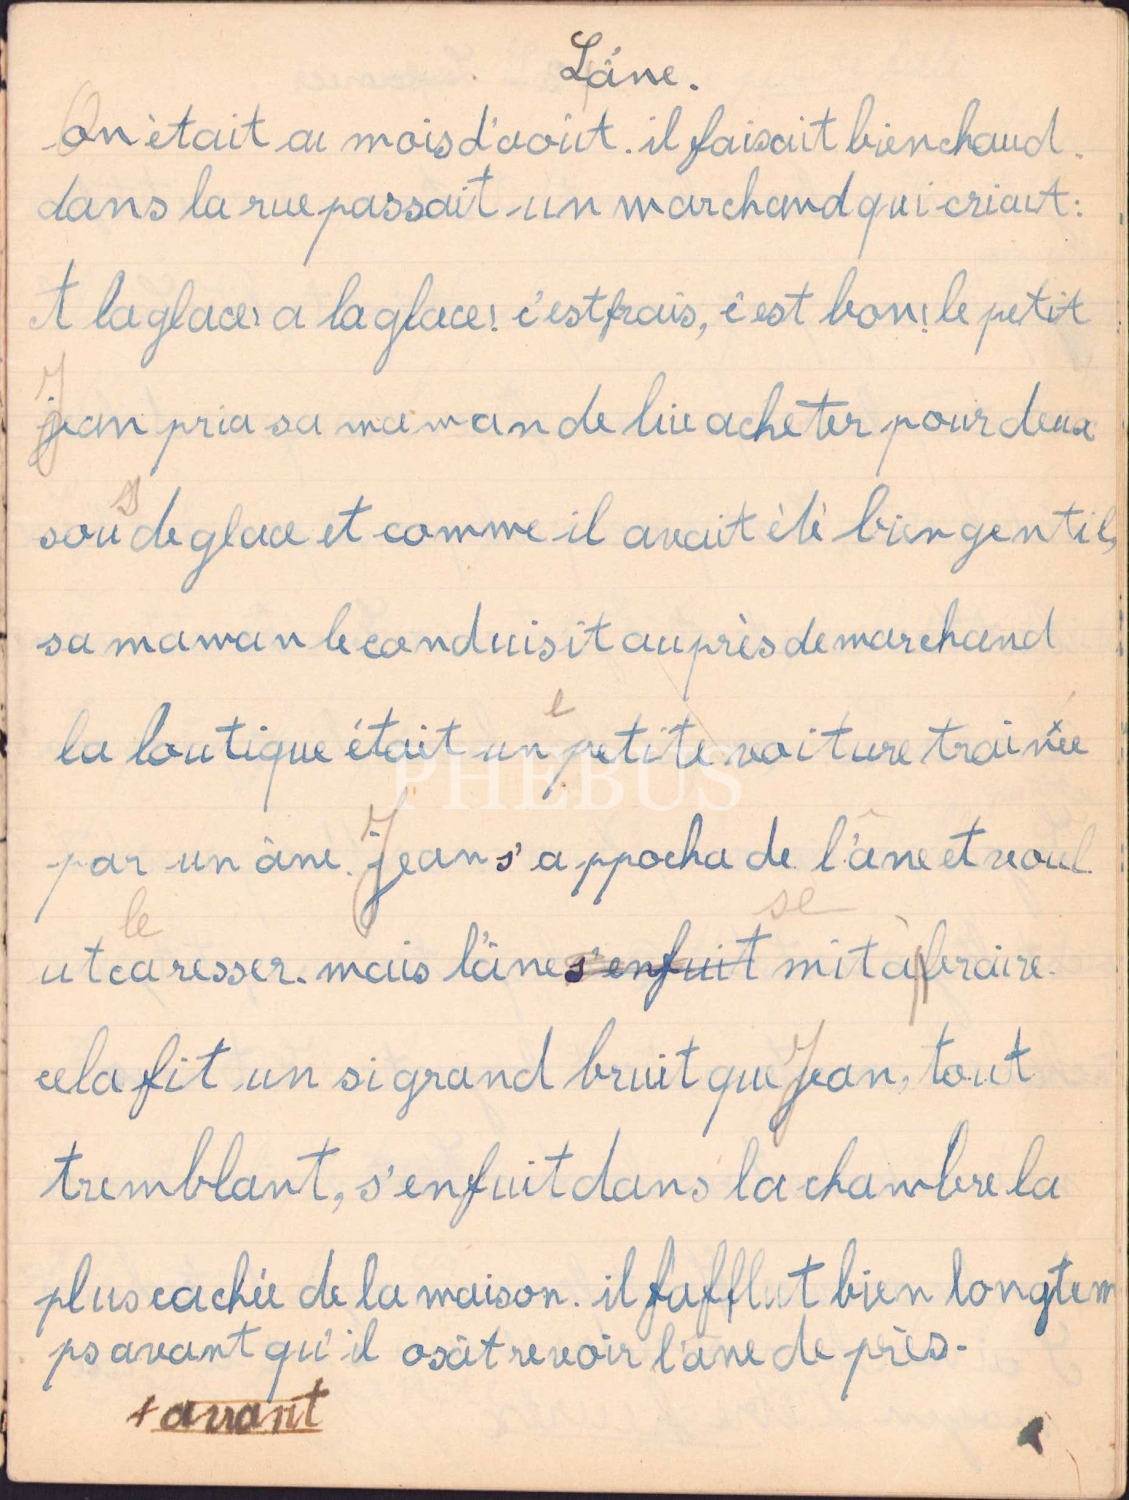 L'âne.
On était au mois d'août. il faisait bien chaud.
dans la rue passait un marchand qui criait:
A la glace! a la glace! c'est frais, c'est bon! le petit
Jean pria sa maman de lui acheter pour deux
s
sou de glace et comme il avait été bien gentil,
sa maman le conduisit auprès de marchand
e
la boutique était un petite voiture trainée
PHEBUS
par un âne. Jean s'appocha de l'âne et voul
le se
ut caresser. mais l'âne s'enfuit mit à braire.
cela fit un si grand bruit que Jean, tout
tremblant, s'enfuit dans la chambre la
plus cachée de la maison. il fafflut bien longtem
ps avant qu'il osât revoir l'âne de près.
+ avant